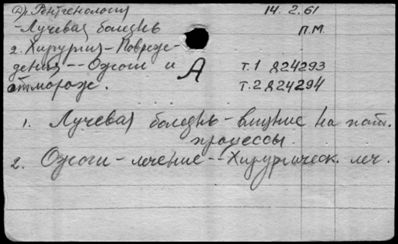 Др. Рентгенология 14.2.61
-Лучевая болезнь П.М.
2. Хирургия-Повреж-
дения--Ожоги и А т.1 Д24293
отморож. т.2 Д24294
1. Лучевая болезнь-влияние на пат.
процессы.
2. Ожоги-лечение--Хирургическ. леч.